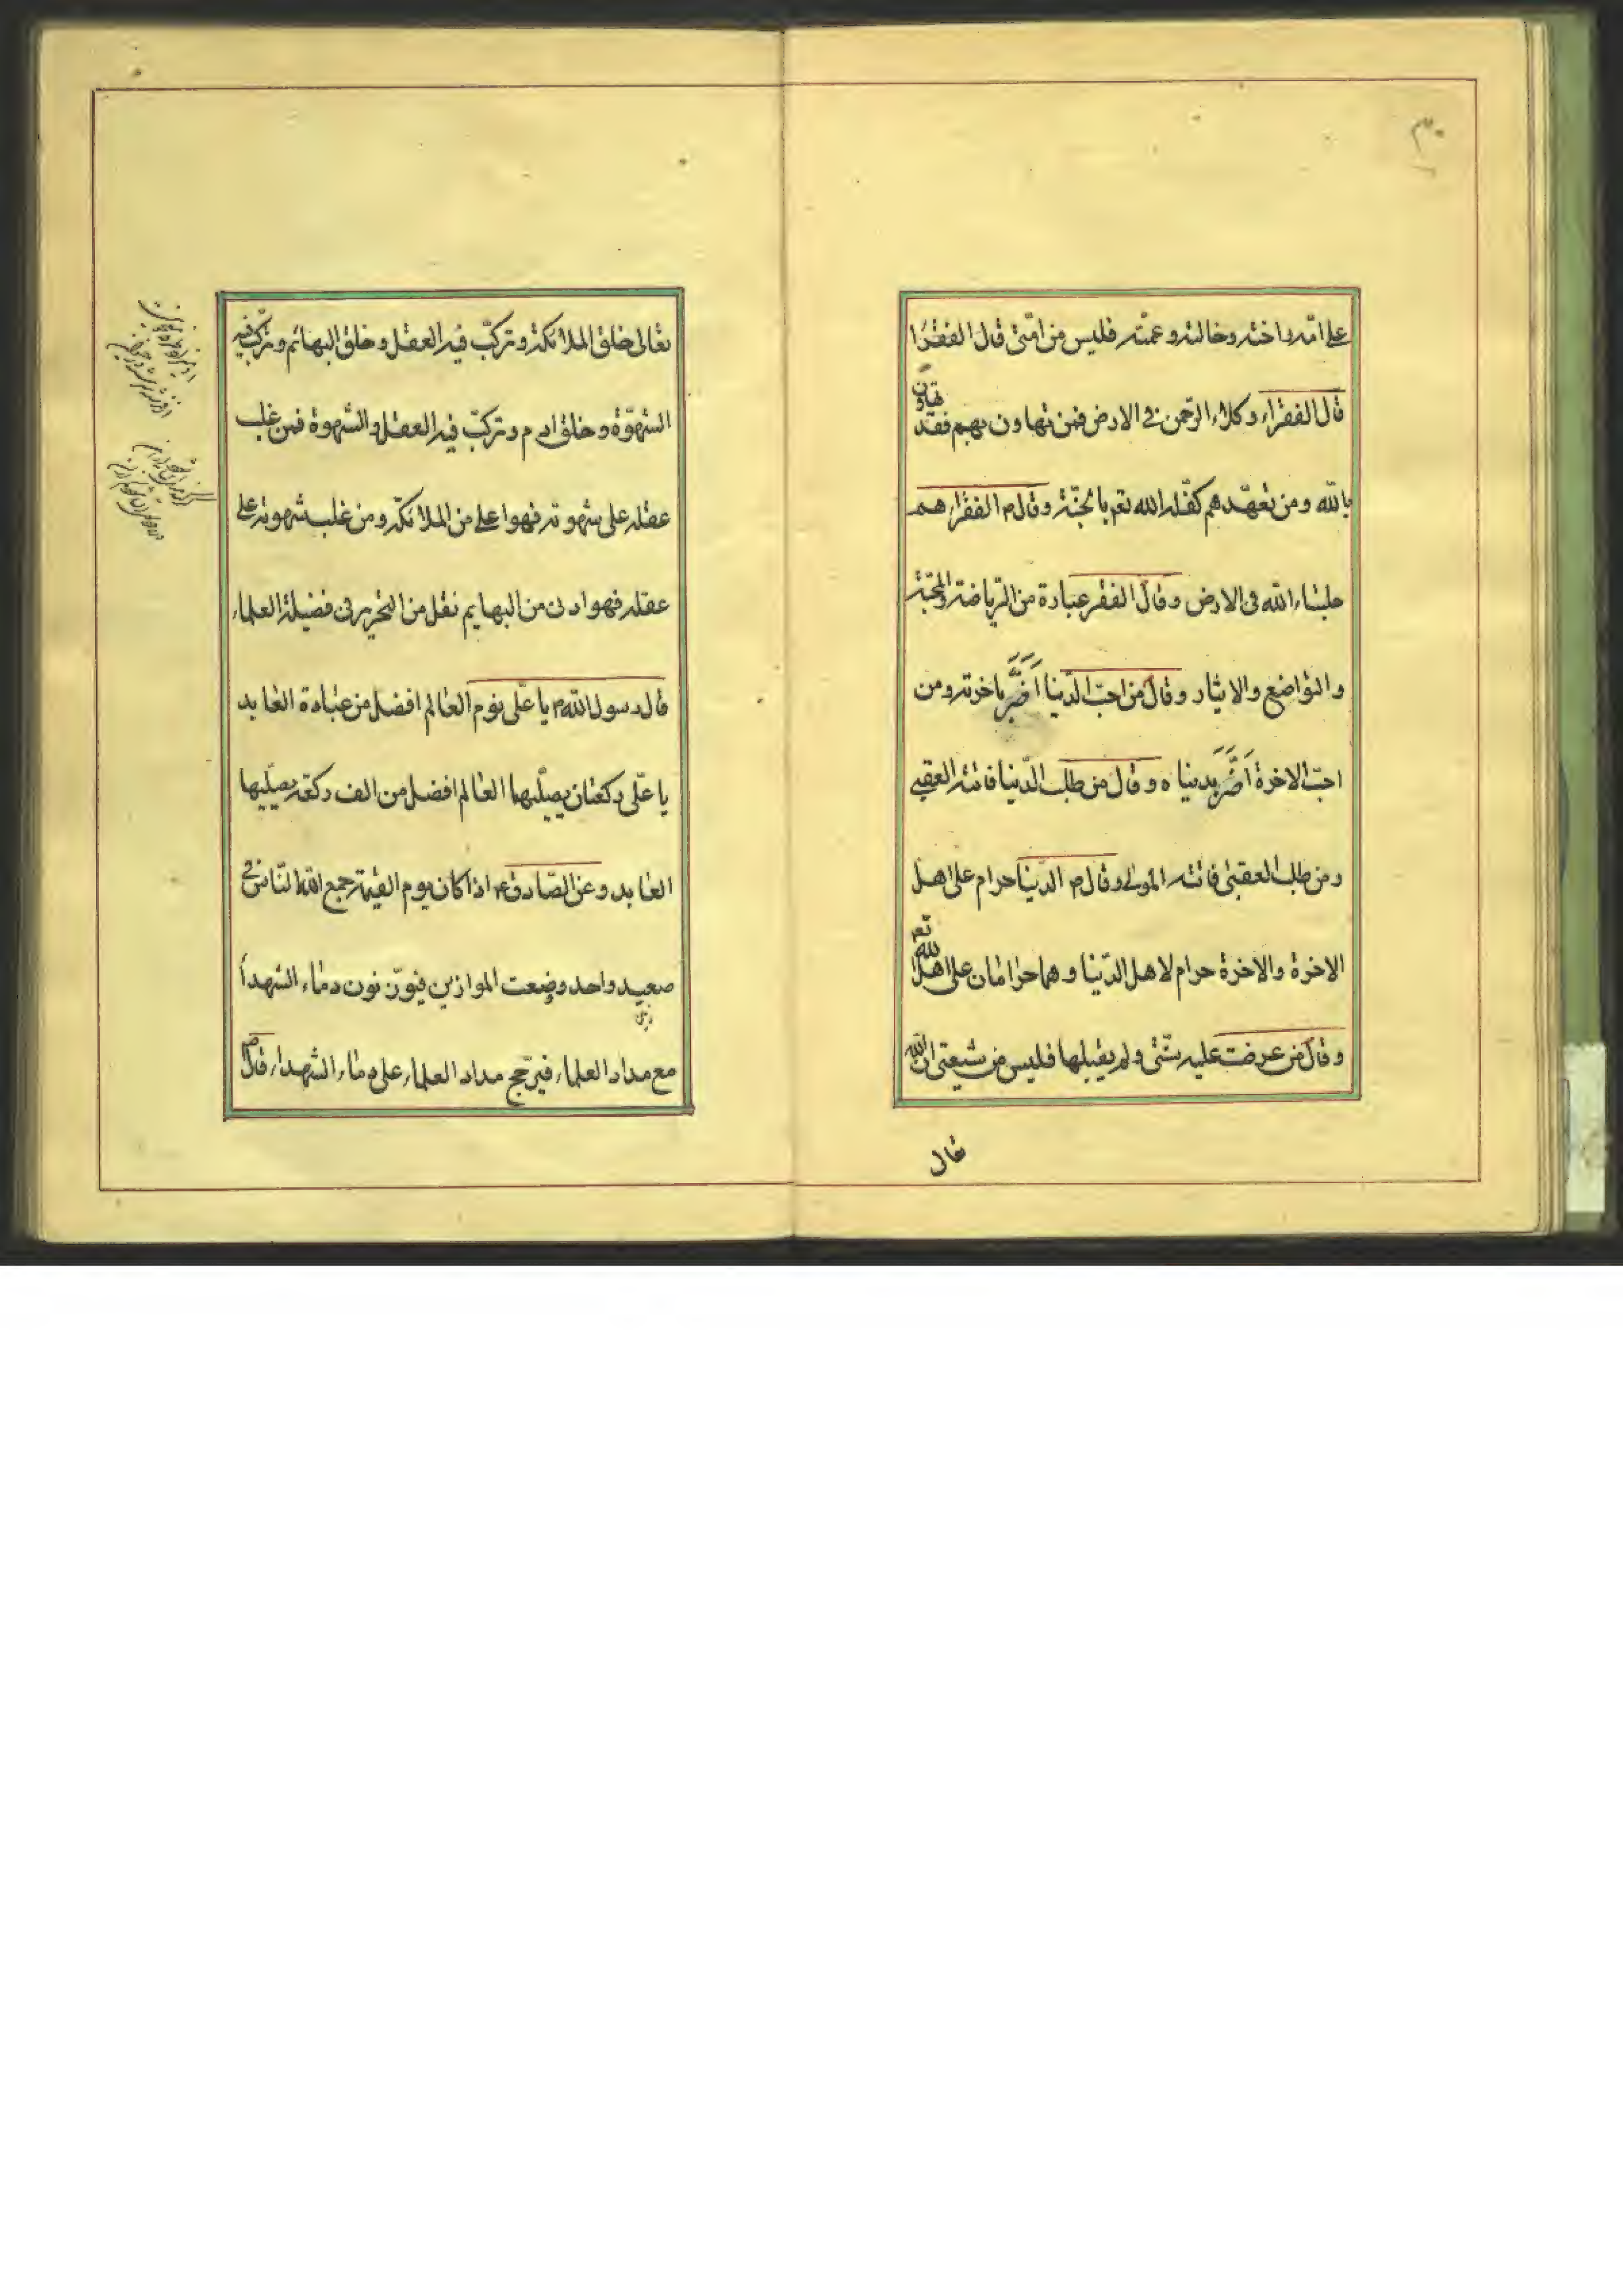 ٣٠
على امّه واخته وخالته وعمّته فليس من امّتى قال الفقرا
قال الفقراء وكلاء الرّحمن فى الارض فمن تهاون بهم فقد تهاون
بالله ومن تعهّدهم كفّله الله تعم بالجنّة وقال ص الفقراء هم
جلساء الله فى الارض وقال الفقر عبادة من الرّياضة والمحبّة
والتواضع والايثار وقال من احبّ الدّنيا اَضَرَّ باخرته ومن
احبّ الاخرة اَضَرَّ بدنياه وقال من طلب الدّنيا فاتته العقبى
ومن طلب العقبى فاتته المولى وقال ص الدّنيا حرام على اهل
الاخرة والاخرة حرام لاهل الدّنيا وهما حرامان على اهل الله تعم
وقال من عرضت عليه شئى ولم يقبلها فليس من شيعتى ان الله
تعالى
تعالى خلق الملائكة وتركّب فيه العقل وخلق البهائم وتركّب فيه
الشهوة وخلق ادم وتركّب فيه العقل والشهوة فمن غلب
عقله على شهوته فهو اعلى من الملائكة ومن غلب شهوته على
عقله فهو ادنى من البهايم نقل من التحرير فى فضيلة العلماء
قال رسول الله ص يا علّى نوم العالم افضل من عبادة العابد
يا علّى ركعتان يصلّيهما العالم افضل من الف ركعة يصلّيها
العابد وعن الصّادق ع اذا كان يوم القيمة جمع الله النّاس فى
صعيد واحد وضعت الموازين فيوّزنون دماء الشهدا
مع مداد العلماء فيرجّح مداد العلماء على دماء الشهداء قال ص